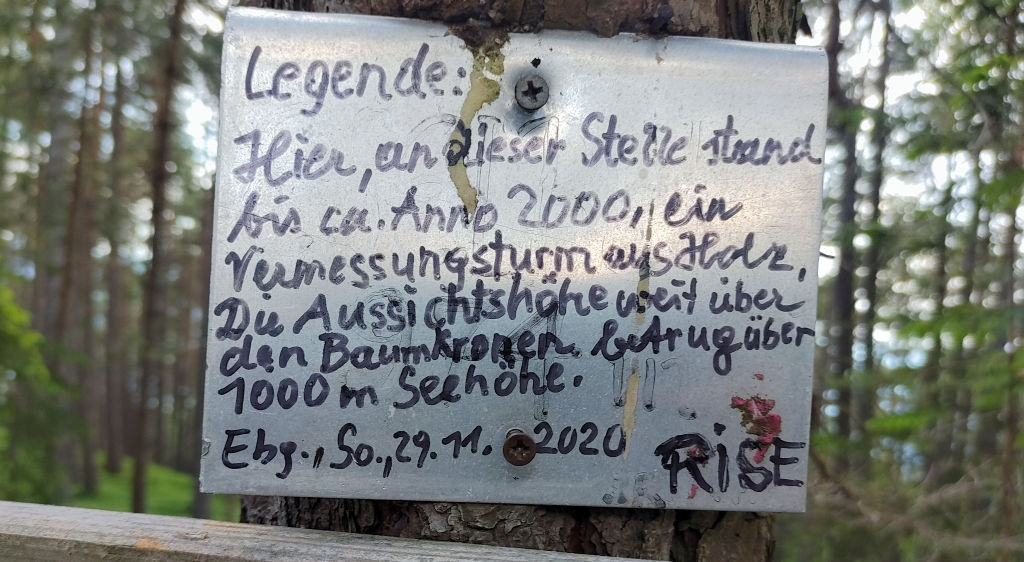 Legende:
Hier, an dieser Stelle stand
bis ca. Anno 2000, ein
Vermessungsturm aus Holz,
Die Aussichtshöhe weit über
den Baumkronen betrug über
1000 m Seehöhe.
Ebg., So., 29.11. 2020
RiSE